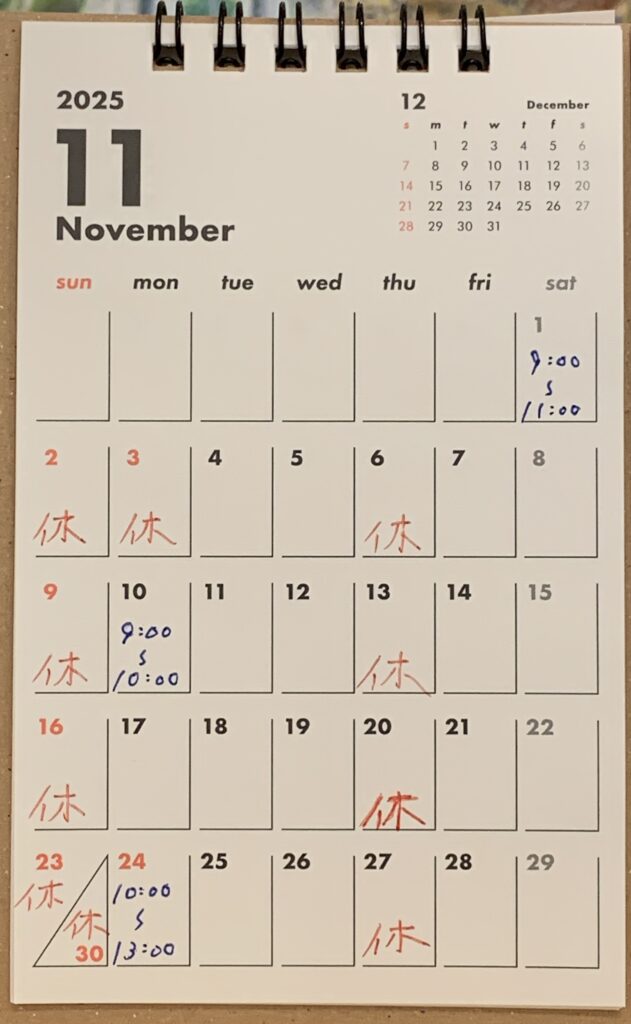 2025
11
November
12 December
s m t w t f s
1 2 3 4 5 6
7 8 9 10 11 12 13
14 15 16 17 18 19 20
21 22 23 24 25 26 27
28 29 30 31
sun mon tue wed thu fri sat
1
9:00
〜
11:00
2 3 4 5 6 7 8
休 休 休
9 10 11 12 13 14 15
9:00
〜
10:00
休 休
16 17 18 19 20 21 22
休 休
23 24 25 26 27 28 29
休 10:00
〜
休 休
30 13:00